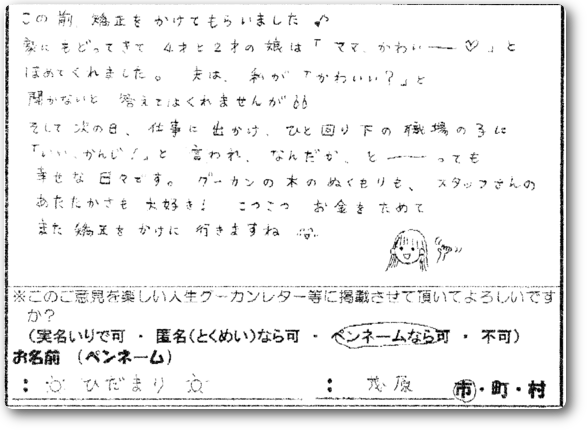 この前、矯正をかけてもらいました♪
家にもどってきて 4才と2才の娘は「ママ、かわいー♡」と
ほめてくれました。 夫は、私が「かわいい?」と
聞かないと 答えてはくれませんが
そして次の日、仕事に出かけ、ひと回り下の職場の子に
「いいかんじ!」と 言われ、なんだか、と――っても
幸せな日々です。 グーカンの木のぬくもりも、スタッフさんの
あたたかさも 大好き! こつこつ お金をためて
また矯正をかけに 行きますね
※このご意見を楽しい人生グーカンレター等に掲載させて頂いてよろしいです
か?
(実名いりで可 ・ 匿名(とくめい)なら可 ・ ペンネームなら可 ・ 不可)
お名前 (ペンネーム)
: ひだまり : 茂原 市・町・村